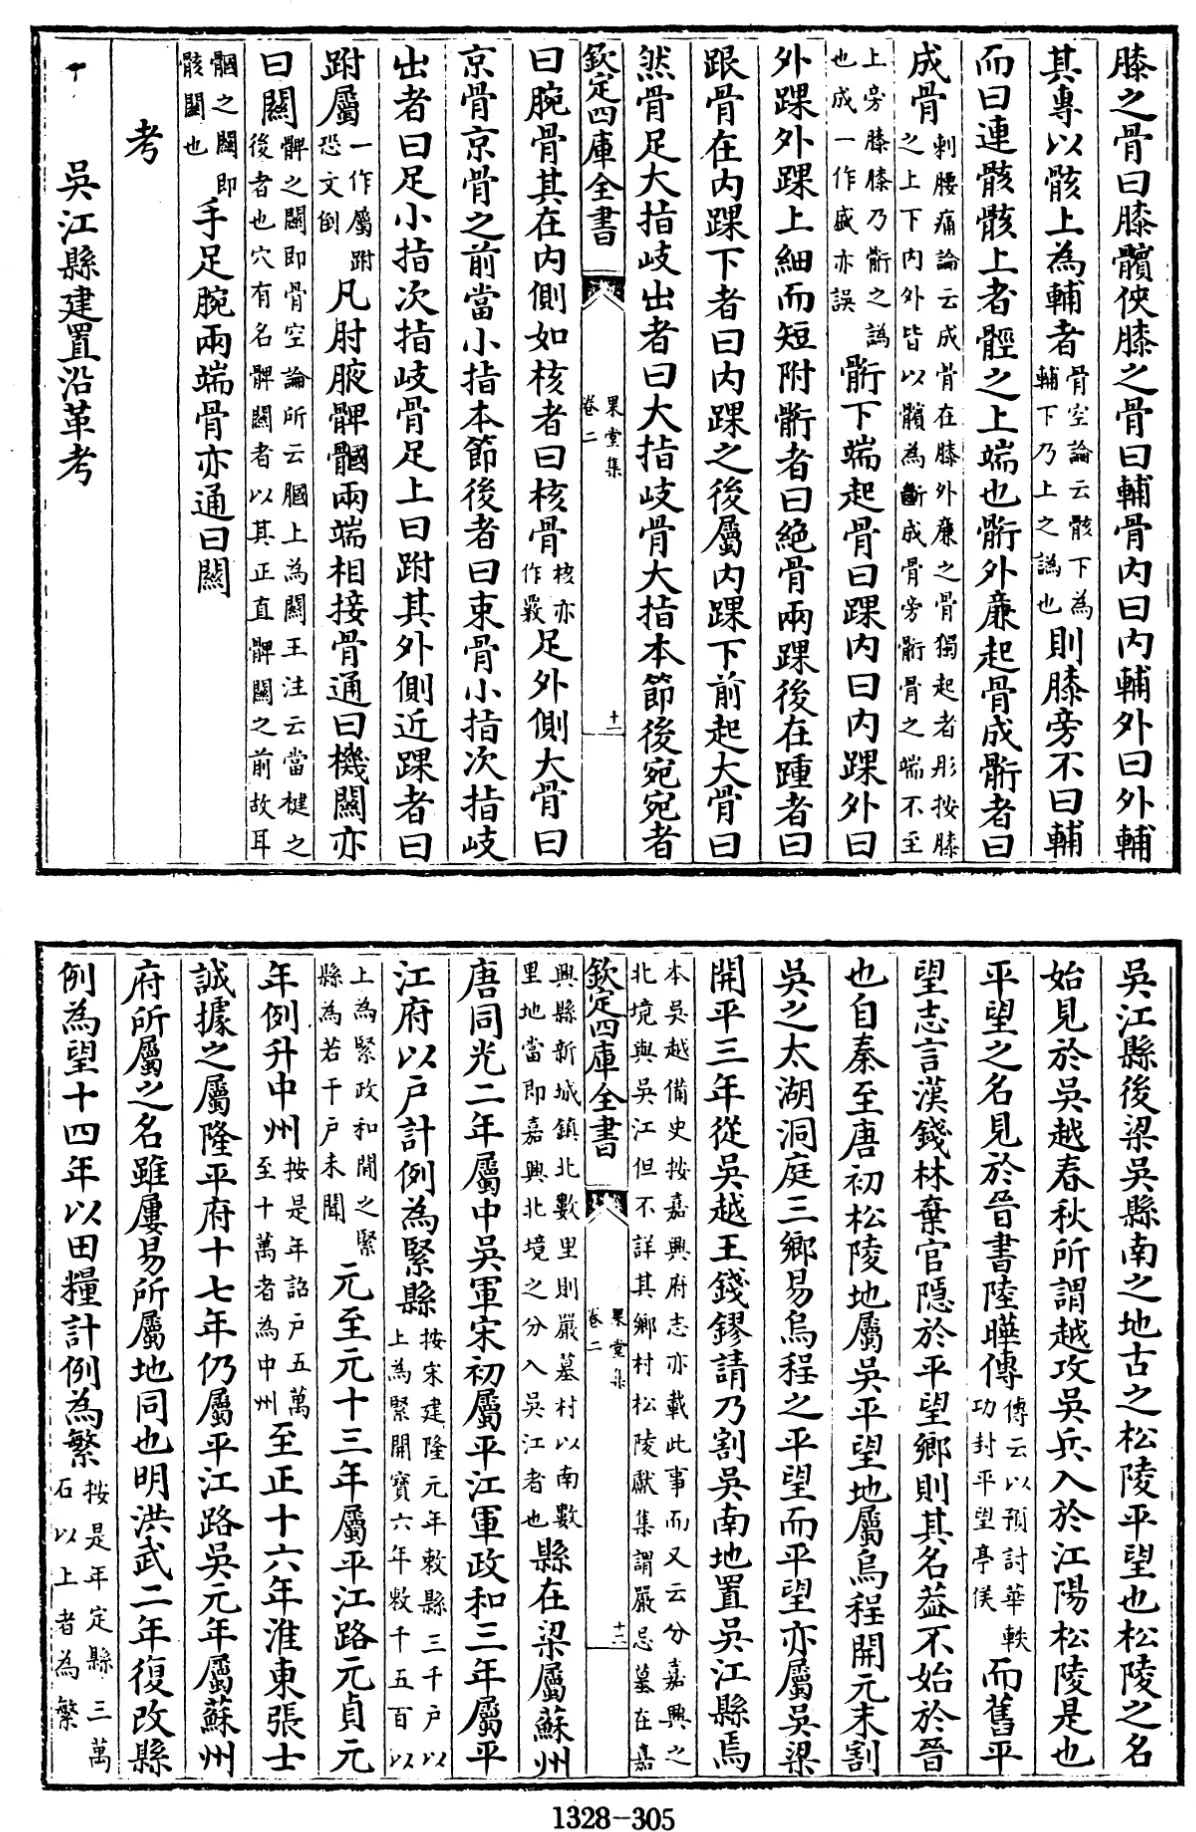 膝之骨曰膝髕俠膝之骨曰輔骨内曰内輔外曰外輔
其專以骸上為輔者骨空論云骸下為輔下乃上之譌也則膝旁不曰輔
而曰連骸骸上者脛之上端也䯒外廉起骨成䯒者曰
成骨刺腰痛論云成骨在膝外廉之骨獨起者彤按膝之上下内外皆以髕為斷成骨旁䯒骨之端不至
上旁膝膝乃䯒之譌也成一作盛亦誤䯒下端起骨曰踝内曰内踝外曰
外踝外踝上細而短附䯒者曰絶骨兩踝後在踵者曰
跟骨在内踝下者曰内踝之後屬内踝下前起大骨曰
然骨足大指歧出者曰大指歧骨大指本節後宛宛者
欽定四庫全書 果堂集 卷二 十一
曰腕骨其在内側如核者曰核骨核亦作覈足外側大骨曰
京骨京骨之前當小指本節後者曰束骨小指次指歧
出者曰足小指次指歧骨足上曰跗其外側近踝者曰
跗屬一作屬跗恐文倒凡肘腋髀膕兩端相接骨通曰機關亦
曰關髀之關即骨空論所云膕上為關王注云當楗之後者也穴有名髀關者以其正直髀關之前故耳
膕之關即骸關也手足腕兩端骨亦通曰關
考
吳江縣建置沿革考
吳江縣後梁吳縣南之地古之松陵平望也松陵之名
始見於吳越春秋所謂越攻吳兵入於江陽松陵是也
平望之名見於晉書陸曄傳傳云以預討華軼功封平望亭侯而舊平
望志言漢錢林棄官隱於平望鄉則其名益不始於晉
也自秦至唐初松陵地屬吳平望地屬烏程開元末割
吳之太湖洞庭三鄉易烏程之平望而平望亦屬吳梁
開平三年從吳越王錢鏐請乃割吳南地置吳江縣焉
本吳越備史按嘉興府志亦載此事而又云分嘉興之北境與吳江但不詳其鄉村松陵獻集謂嚴忌墓在嘉
欽定四庫全書 果堂集 卷二 十二
興縣新城鎮北數里則嚴墓村以南數里地當即嘉興北境之分入吳江者也縣在梁屬蘇州
唐同光二年屬中吳軍宋初屬平江軍政和三年屬平
江府以戸計例為緊縣按宋建隆元年敕縣三千戸以上為緊開寶六年敕千五百以
上為緊政和間之緊縣為若干戸未聞元至元十三年屬平江路元貞元
年例升中州按是年詔戸五萬至十萬者為中州至正十六年淮東張士
誠據之屬隆平府十七年仍屬平江路吳元年屬蘇州
府所屬之名雖屢易所屬地同也明洪武二年復改縣
例為望十四年以田糧計例為繁按是年定縣三萬石以上者為繁
1328-305